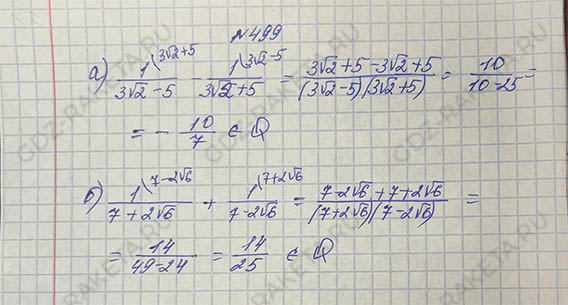 №499
а) 1^(3√2+5 / (3√2-5) - 1^(3√2-5 / (3√2+5) = (3√2+5-3√2+5) / ((3√2-5)(3√2+5)) = 10 / (10-25) =
= - 10/7 ∈ Q
б) 1^(7-2√6 / (7+2√6) + 1^(7+2√6 / (7-2√6) = (7-2√6+7+2√6) / ((7+2√6)(7-2√6)) =
= 14 / (49-24) = 14/25 ∈ Q
GDZ-RAKETA.RU